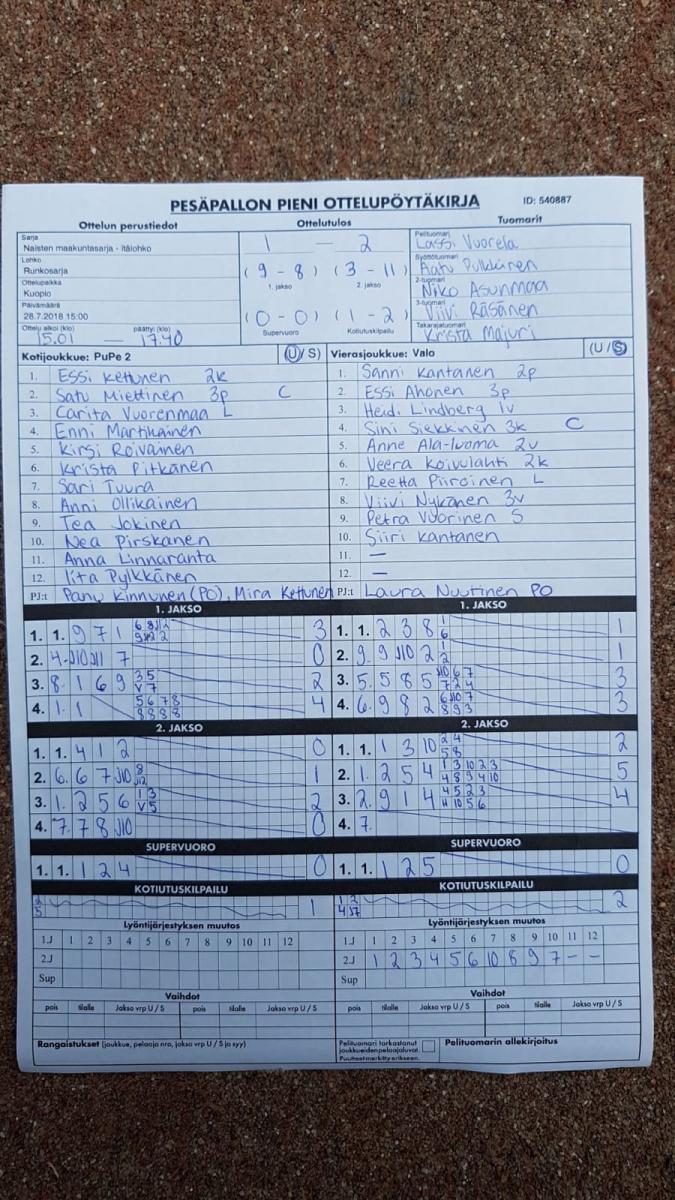 PESÄPALLON PIENI OTTELUPÖYTÄKIRJA ID: 540887
Ottelun perustiedot Ottelutulos Tuomarit
Sarja
Naisten maakuntasarja - Itälohko
Lohko
Runkosarja
Ottelupaikka
Kuopio
Päivämäärä
28.7.2018 15:00
Ottelu alkoi (klo) päättyi (klo)
15.01 — 17.40
1 — 2
(9 - 8) (3 - 11)
1. jakso 2. jakso
(0 - 0) (1 - 2)
Supervuoro Kotiutuskilpailu
Pelituomari
Lassi Vuorela
Syöttötuomari
Aatu Pulkkinen
2-tuomari
Niko Asunmaa
3-tuomari
Viivi Räsänen
Takarajatuomari
Krista Majuri
Kotijoukkue: PuPe 2 (U/S)
1. Essi Kettunen 2k
2. Satu Miettinen 3p C
3. Carita Vuorenmaa L
4. Enni Martikainen
5. Kirsi Roivainen
6. Krista Pitkänen
7. Sari Tuura
8. Anni Ollikainen
9. Tea Jokinen
10. Nea Pirskanen
11. Anna Linnaranta
12. Iita Pylkkänen
PJ:t Panu Kinnunen (PO), Mira Kettunen
Vierasjoukkue: Valo (U/S)
1. Sanni Kantanen 2p
2. Essi Ahonen 3p
3. Heidi Lindberg 1v
4. Sini Siekkinen 3k C
5. Anne Ala-Luoma 2v
6. Veera Koivulahti 2k
7. Reetta Piiroinen L
8. Viivi Nykänen 3v
9. Petra Vuorinen S
10. Siiri Kantanen
11. —
12. —
PJ:t Laura Nuutinen PO
1. JAKSO
1. 1. 9 7 1 3
2. 4. J10 J11 7 0
3. 8. 1 6 9 3 5 V 7 2
4. 1. 1 5 6 7 8 8 8 8 8 4
2. JAKSO
1. 1. 4 1 2 0
2. 6. 6 7 J10 8 J12 1
3. 1. 2 5 6 1 3 V 5 2
4. 7. 7 8 J10 0
SUPERVUORO
1. 1. 1 2 4 0
KOTIUTUSKILPAILU
2 5 1
1. JAKSO
1. 1. 2 3 8 1 6 1
2. 9. 9 J10 2 1 2 1
3. 5. 5 8 5 J10 6 7 7 2 4 3
4. 6. 9 8 2 6 J10 7 8 9 3 3
2. JAKSO
1. 1. 1 3 10 2 4 5 8 2
2. 1. 2 5 4 1 3 10 2 3 4 8 9 4 10 5
3. 2. 9 1 4 4 5 2 3 4 10 5 6 4
4. 7.
SUPERVUORO
1. 1. 1 2 5 0
KOTIUTUSKILPAILU
1 2 2
Lyöntijärjestyksen muutos
1.J 1 2 3 4 5 6 7 8 9 10 11 12
2.J
Sup
Lyöntijärjestyksen muutos
1.J 1 2 3 4 5 6 7 8 9 10 11 12
2.J 1 2 3 4 5 6 10 8 9 7 - -
Sup
Vaihdot
pois tilalle Jakso vrp U / S pois tilalle Jakso vrp U / S
Vaihdot
pois tilalle Jakso vrp U / S pois tilalle Jakso vrp U / S
Rangaistukset (joukkue, pelaaja nro, jakso vrp U / S ja syy)
Pelituomari tarkastanut
joukkueiden pelaajaluvat.
Puutteet merkitty erikseen.
Pelituomarin allekirjoitus